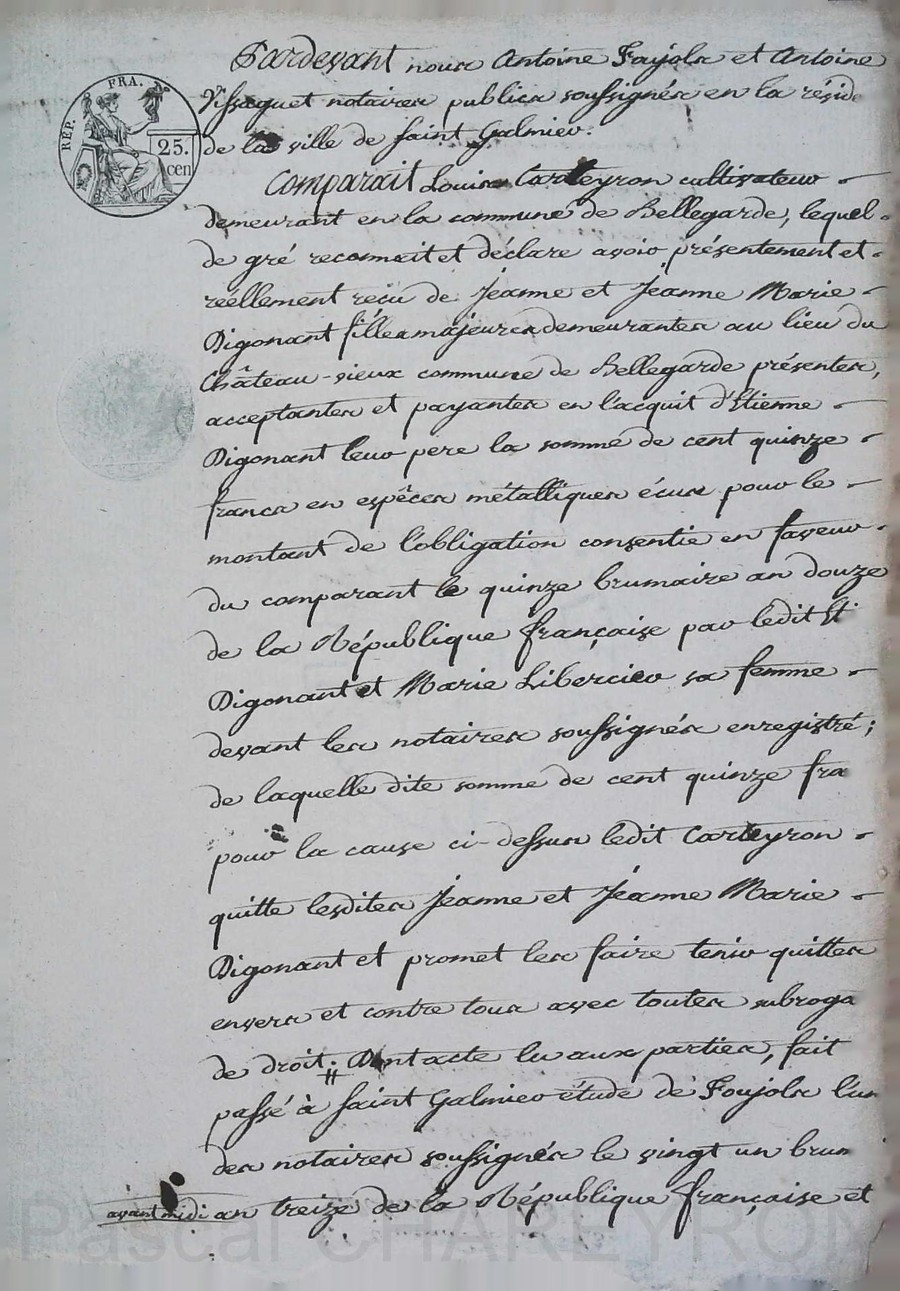 REP. FRA.
25.
cen
Pardevant nous Antoine Foujols et Antoine
Vissaguet notaires publics soussignés en la réside
de la ville de Saint Galmier.
Comparait Louis Carteyron cultivateur
demeurant en la commune de Bellegarde, lequel
de gré reconnait et déclare avoir présentement et
réellement reçu de Jeanne et Jeanne Marie
Digonant filles majeures demeurantes au lieu du
Château-vieux commune de Bellegarde présentes,
acceptantes et payantes en l'acquit d'Etienne
Digonant leur pere la somme de cent quinze
francs en espêces métalliques écus pour le
montant de l'obligation consentie en faveur
du comparant le quinze brumaire an douze
de la République française par ledit Et
Digonant et Marie Libercier sa femme
devant les notaires soussignés enregistré;
de laquelle dite somme de cent quinze fra
pour la cause ci-dessus ledit Carteyron
quitte lesdites Jeanne et Jeanne Marie
Digonant et promet les faire tenir quittes
envers et contre tous avec toutes subroga
de droit; Dont acte lu aux parties, fait
passé à Saint Galmier étude de Foujols l'un
des notaires soussignés le vingt un brum
avant midi an treize de la République française et
Pascal CHAREYRON